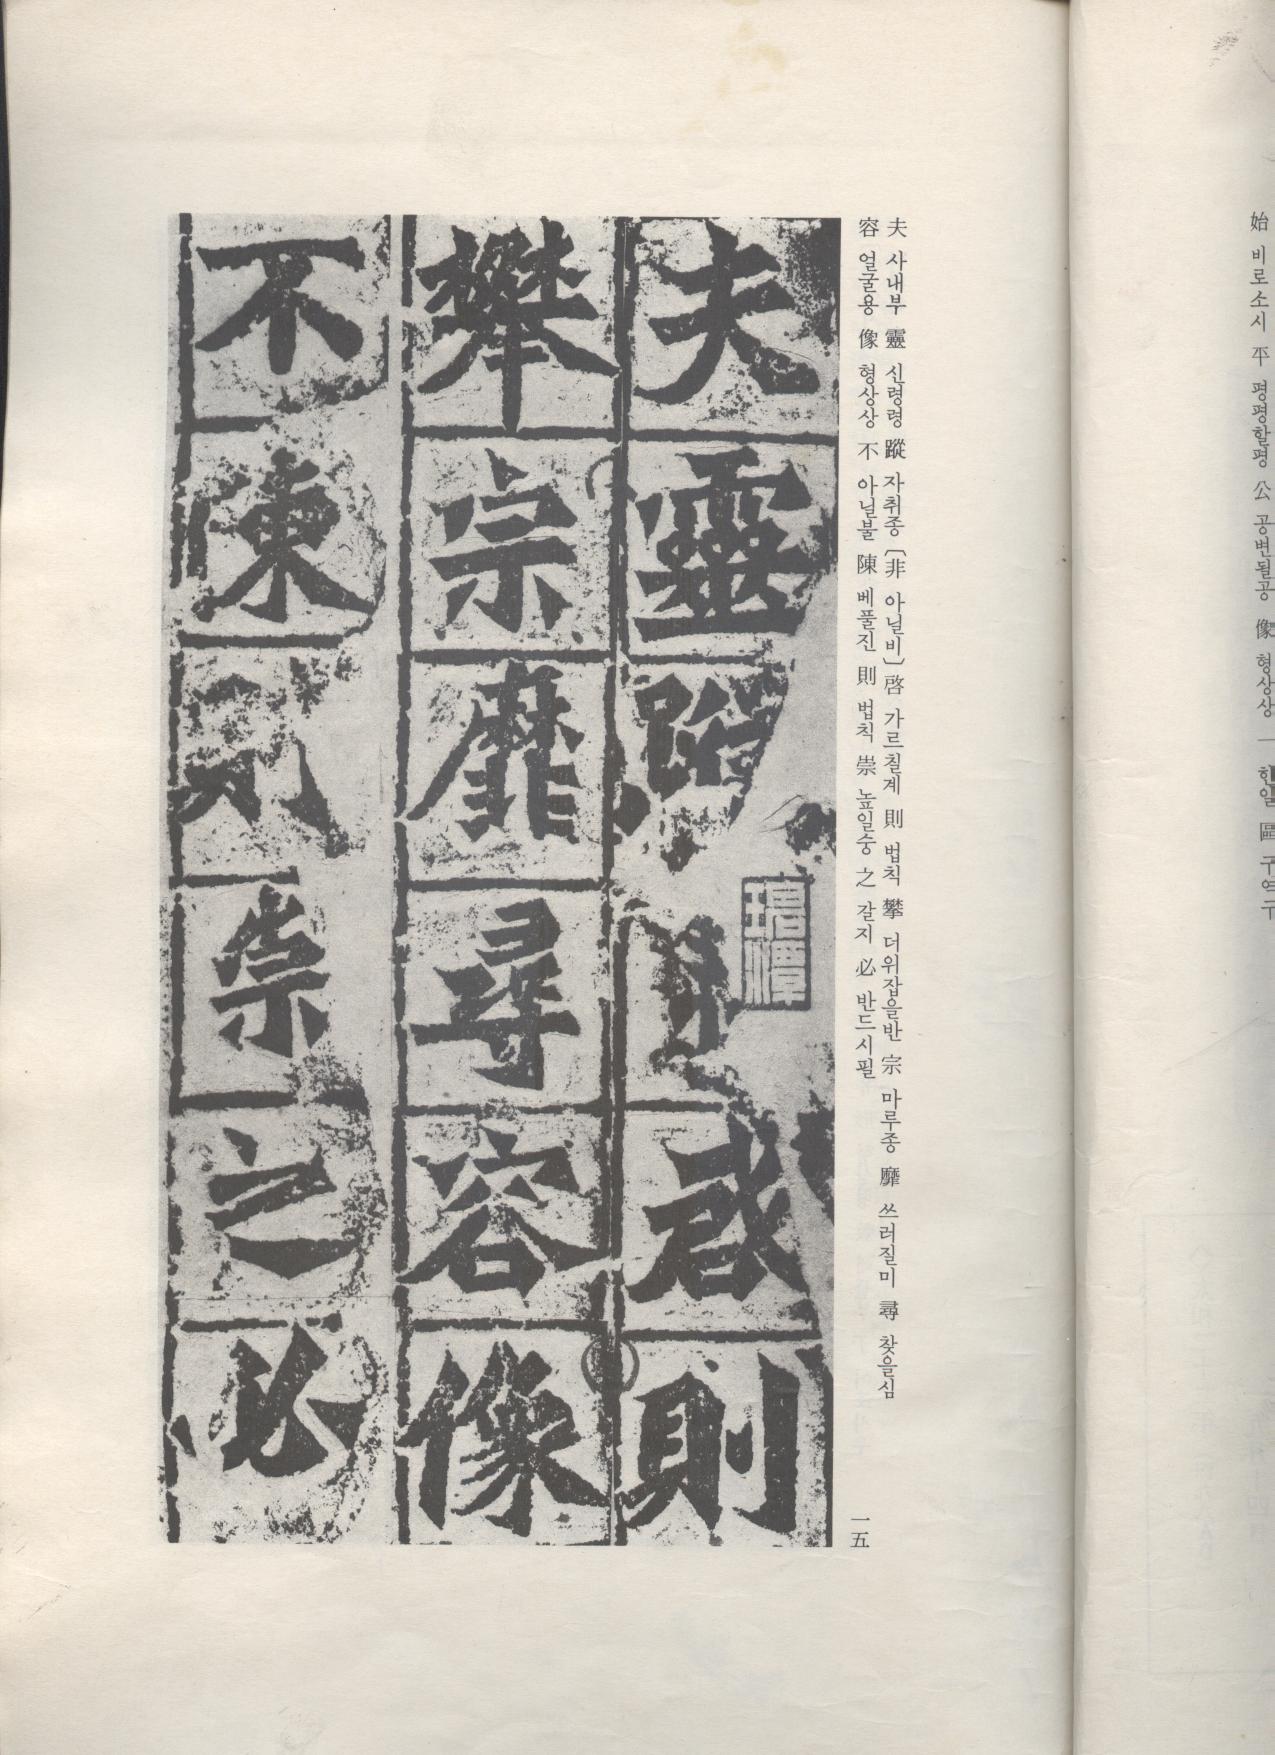 始 비로소시 平 평평할평 公 공변될공 像 형상상 一 한일 區 구역구
夫 사내부 靈 신령령 蹤 자취종 〔非 아닐비〕 啓 가르칠계 則 법칙 攀 더위잡을반 宗 마루종 靡 쓰러질미 尋 찾을심
容 얼굴용 像 형상상 不 아닐불 陳 베풀진 則 법칙 崇 높일숭 之 갈지 必 반드시필
一五
夫靈蹤啓則
攀宗靡尋容像
不陳則崇之必